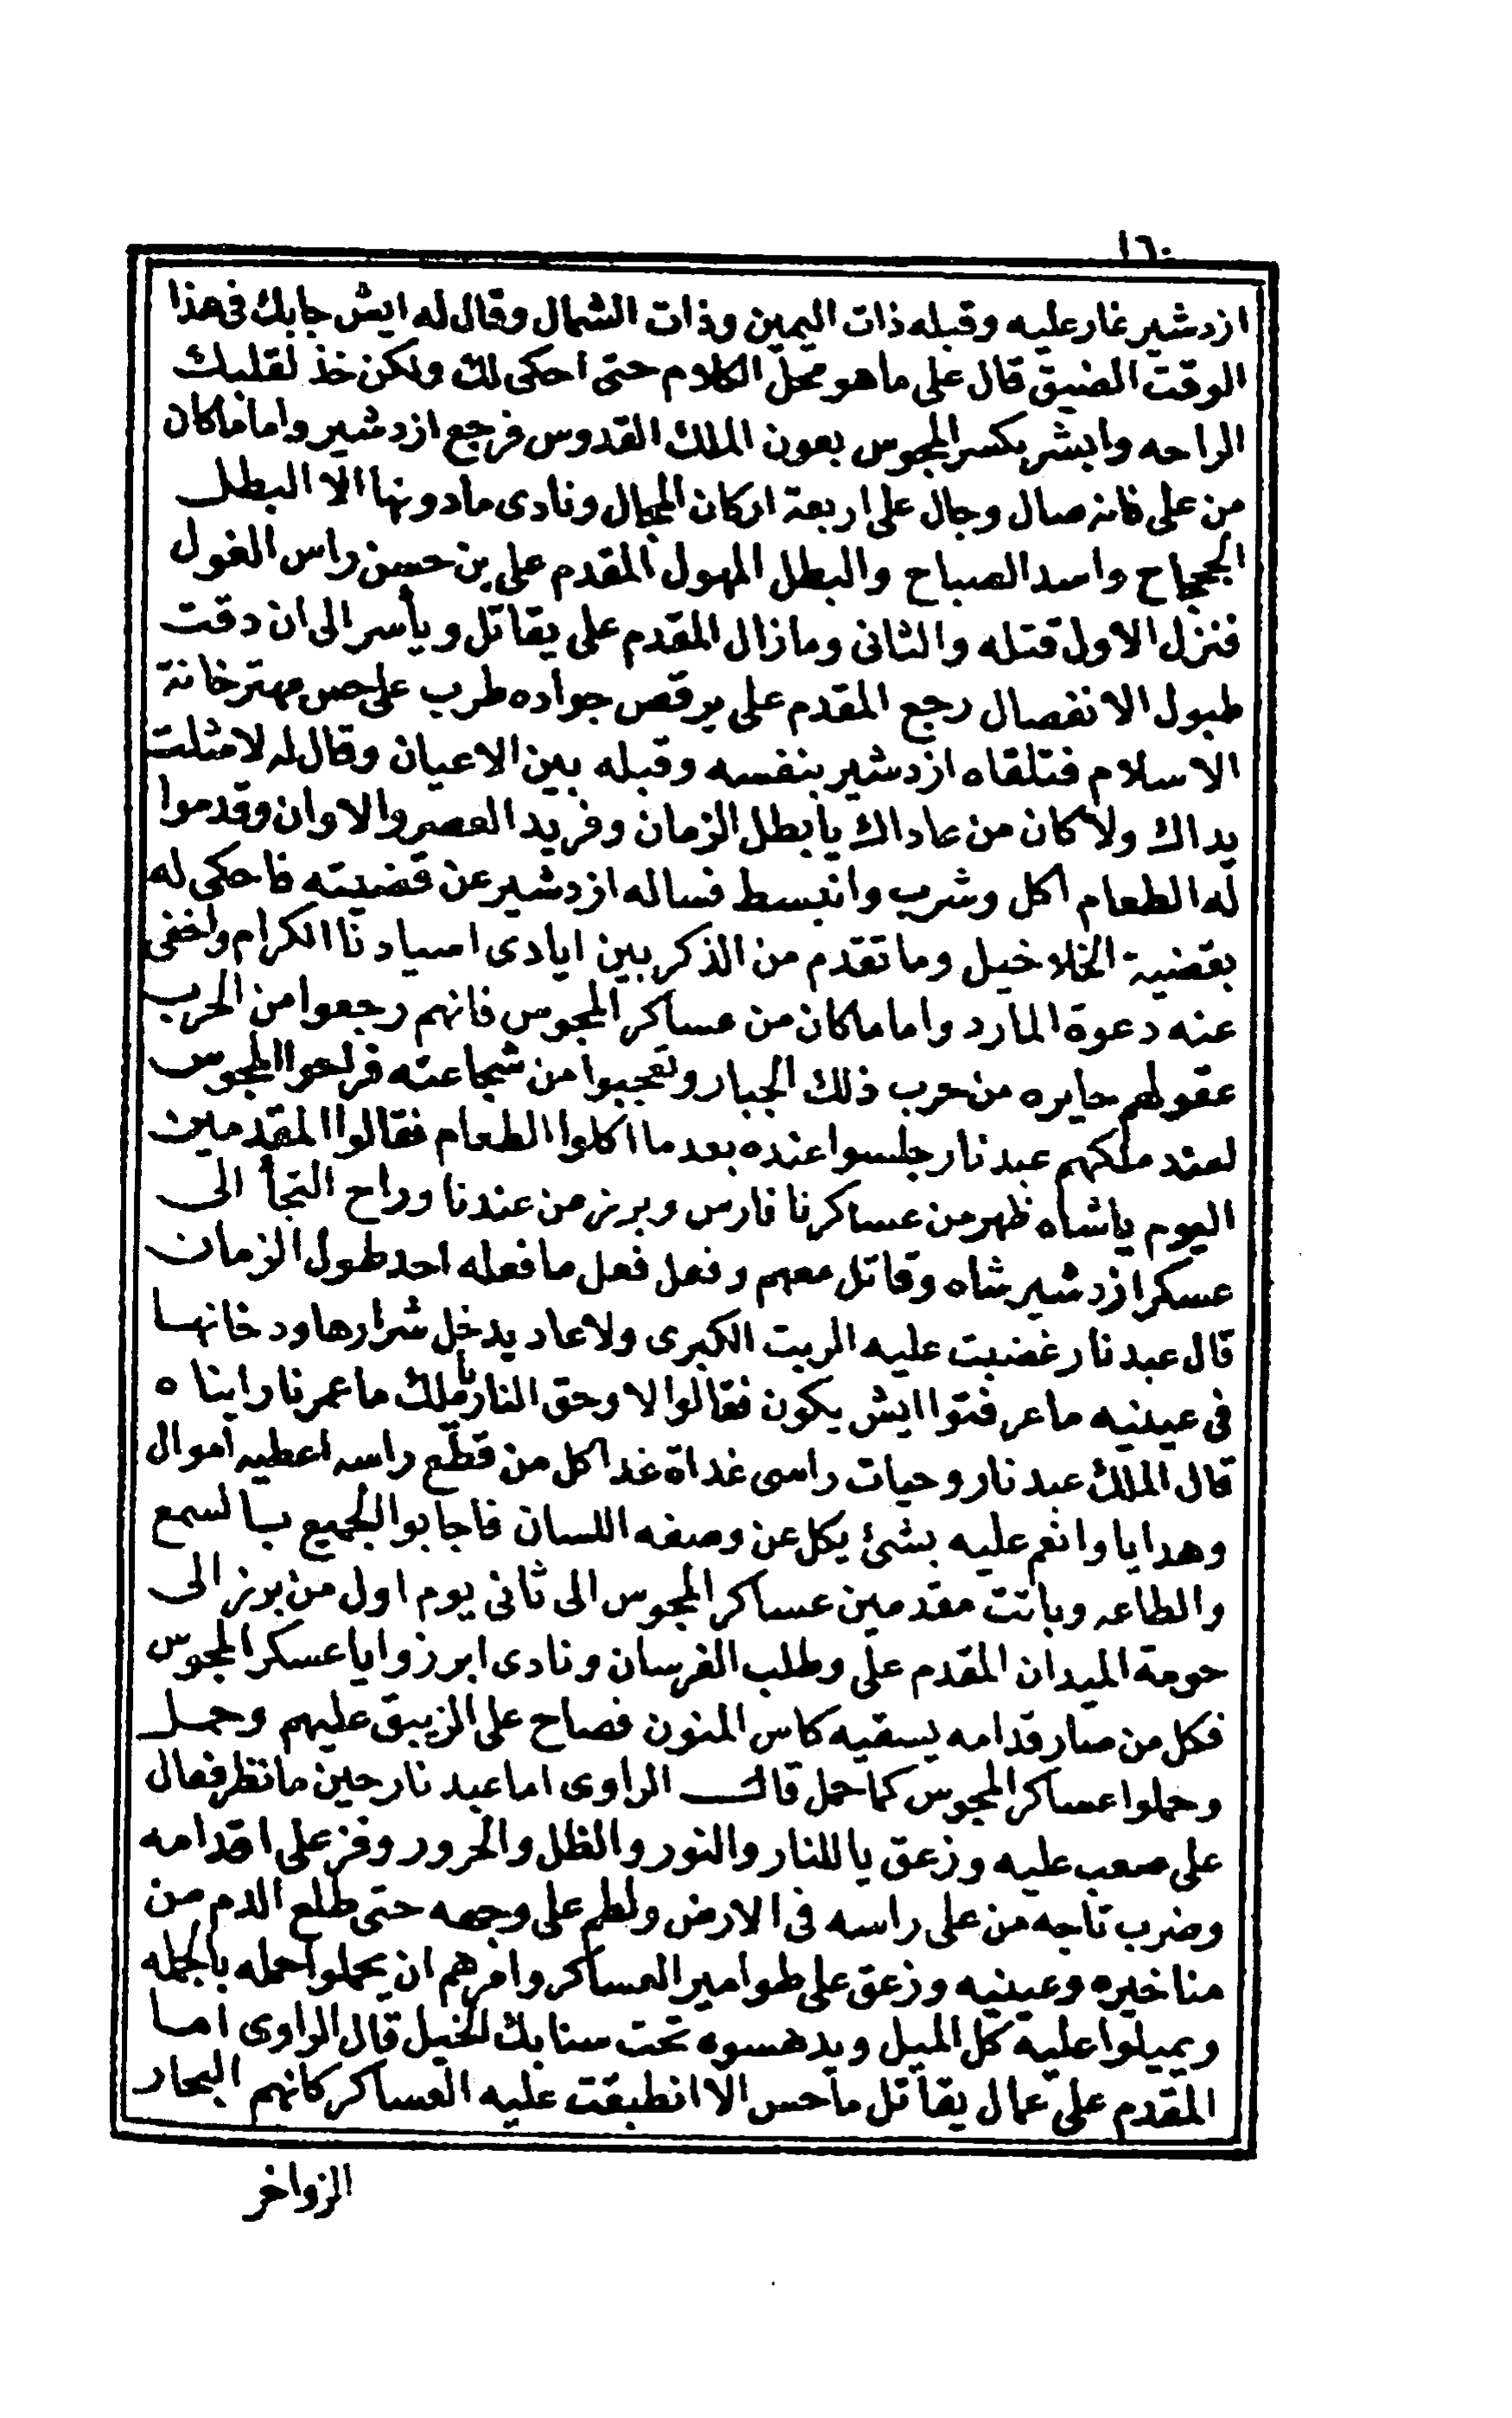 ١٦٠
ازدشير غار عليه وقبله ذات اليمين وذات الشمال وقال له ايش جابك فى هذا
الوقت الضيق قال على ما هو محل الكلام حتى احكى لك ولكن خذ لقلبك
الراحه وابشر بكسر المجوس بعون الملك القدوس فرجع ازدشير واما ما كان
من على فانه صال وجال على اربعة اركان المجال ونادى ما دونها الا البطل
الجحجاح واسد الصباح والبطل المهول المقدم على بن حسن راس الغول
فنزل الاول قتله والثانى وما زال المقدم على يقاتل ويأسر الى ان دقت
طبول الانفصال رجع المقدم على يرقص جواده طرب على حس مهترخانة
الاسلام فتلقاه ازدشير بنفسه وقبله بين الاعيان وقال له لا شلت
يداك ولا كان من عاداك يا بطل الزمان وفريد العصر والاوان وقدموا
له الطعام اكل وشرب وانبسط فساله ازدشير عن قضيته فاحكى له
بقضية الخلاخيل وما تقدم من الذكر بين ايادى اسيادنا الكرام واخفى
عنه دعوة المارد واما ما كان من عساكر المجوس فانهم رجعوا من الحرب
عقولهم حايره من حرب ذلك الجبار وتعجبوا من شجاعته فراحوا المجوس
لعند ملكهم عبد نار جلسوا عنده بعد ما اكلوا الطعام فقالوا المقدمين
اليوم يا شاه ظهر من عساكرنا فارس وبرز من عندنا وراح التجأ الى
عسكر ازدشير شاه وقاتل معهم وفعل فعل ما فعله احد طول الزمان
قال عبد نار غضبت عليه الربت الكبرى ولا عاد يدخل شرارها ودخانها
فى عينيه ما عرفتوا ايش يكون فقالوا لا وحق النار يا ملك ما عمرنا راينا ه
قال الملك عبد نار وحيات راسى غداة غدا كل من قطع راسه اعطيه اموال
وهدايا وانعم عليه بشئ يكل عن وصفه اللسان فاجابوا الجميع بالسمع
والطاعه وباتت مقدمين عساكر المجوس الى ثانى يوم اول من برز الى
حومة الميدان المقدم على وطلب الفرسان ونادى ابرزوا يا عسكر المجوس
فكل من صار قدامه يسقيه كاس المنون فصاح على الزيبق عليهم وحمل
وحملوا عساكر المجوس كما حمل قال الراوى اما عبد نار حين ما نظر فعال
على صعب عليه وزعق يا للنار والنور والظل والحرور وفز على اقدامه
وضرب تاجه من على راسه فى الارض ولطم على وجهه حتى طلع الدم من
مناخيره وعينيه وزعق على طوامير العساكر وامرهم ان يحملوا حمله بالجمله
ويميلوا عليه كل الميل ويدهسوه تحت سنابك الخيل قال الراوى اما
المقدم على عمال يقاتل ما حس الا انطبقت عليه العساكر كانهم البحار
الزواخر